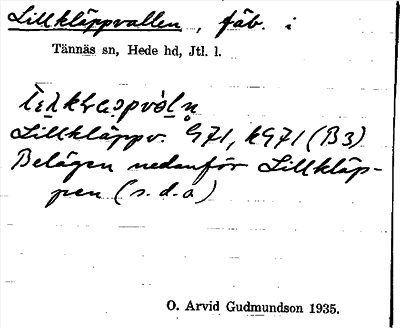 Lillkläppvallen, fäb. i
Tännäs sn, Hede hd, Jtl. l.
Lillkläppv. G71, kG71 (B3)
Belägen nedanför Lillkläp-
pen (s.d.o)
O. Arvid Gudmundson 1935.